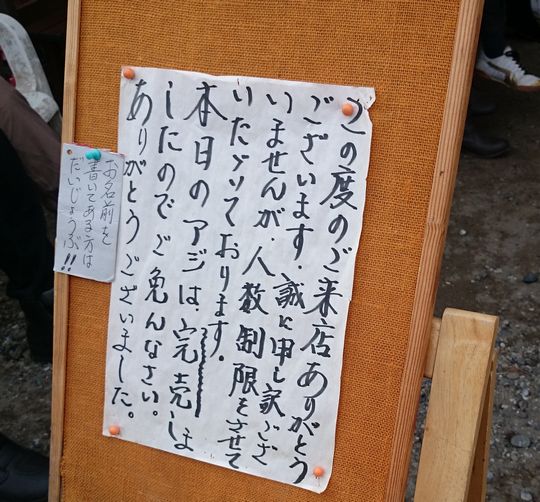 この度のご来店ありがとう
ございます。誠に申し訳ござ
いませんが、人数制限をさせて
いただいております。
本日のアジは、完売しま
したのでご免んなさい。
ありがとうございました。
お名前を
書いてある方は
だいじょうぶ!!